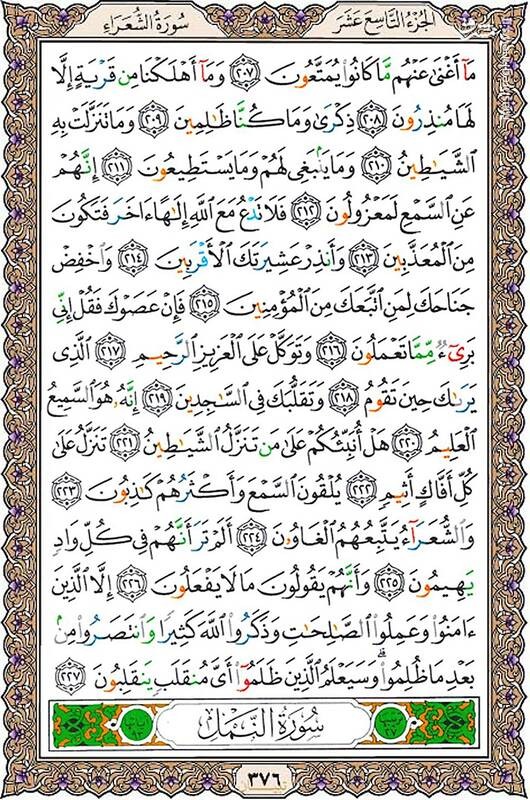 الجُزءُ التَّاسِعَ عَشَرَ
سُورَةُ الشُّعَرَاءِ
مَآ أَغْنَىٰ عَنْهُم مَّا كَانُوا۟ يُمَتَّعُونَ ﴿٢٠٧﴾ وَمَآ أَهْلَكْنَا مِن قَرْيَةٍ إِلَّا
لَهَا مُنذِرُونَ ﴿٢٠٨﴾ ذِكْرَىٰ وَمَا كُنَّا ظَـٰلِمِينَ ﴿٢٠٩﴾ وَمَا تَنَزَّلَتْ بِهِ
ٱلشَّيَـٰطِينُ ﴿٢١٠﴾ وَمَا يَنۢبَغِى لَهُمْ وَمَا يَسْتَطِيعُونَ ﴿٢١١﴾ إِنَّهُمْ
عَنِ ٱلسَّمْعِ لَمَعْزُولُونَ ﴿٢١٢﴾ فَلَا تَدْعُ مَعَ ٱللَّهِ إِلَـٰهًا ءَاخَرَ فَتَكُونَ
مِنَ ٱلْمُعَذَّبِينَ ﴿٢١٣﴾ وَأَنذِرْ عَشِيرَتَكَ ٱلْأَقْرَبِينَ ﴿٢١٤﴾ وَٱخْفِضْ
جَنَاحَكَ لِمَنِ ٱتَّبَعَكَ مِنَ ٱلْمُؤْمِنِينَ ﴿٢١٥﴾ فَإِنْ عَصَوْكَ فَقُلْ إِنِّى
بَرِىٓءٌ مِّمَّا تَعْمَلُونَ ﴿٢١٦﴾ وَتَوَكَّلْ عَلَى ٱلْعَزِيزِ ٱلرَّحِيمِ ﴿٢١٧﴾ ٱلَّذِى
يَرَىٰكَ حِينَ تَقُومُ ﴿٢١٨﴾ وَتَقَلُّبَكَ فِى ٱلسَّـٰجِدِينَ ﴿٢١٩﴾ إِنَّهُۥ هُوَ ٱلسَّمِيعُ
ٱلْعَلِيمُ ﴿٢٢٠﴾ هَلْ أُنَبِّئُكُمْ عَلَىٰ مَن تَنَزَّلُ ٱلشَّيَـٰطِينُ ﴿٢٢١﴾ تَنَزَّلُ عَلَىٰ
كُلِّ أَفَّاكٍ أَثِيمٍ ﴿٢٢٢﴾ يُلْقُونَ ٱلسَّمْعَ وَأَكْثَرُهُمْ كَـٰذِبُونَ ﴿٢٢٣﴾
وَٱلشُّعَرَآءُ يَتَّبِعُهُمُ ٱلْغَاوُۥنَ ﴿٢٢٤﴾ أَلَمْ تَرَ أَنَّهُمْ فِى كُلِّ وَادٍ
يَهِيمُونَ ﴿٢٢٥﴾ وَأَنَّهُمْ يَقُولُونَ مَا لَا يَفْعَلُونَ ﴿٢٢٦﴾ إِلَّا ٱلَّذِينَ
ءَامَنُوا۟ وَعَمِلُوا۟ ٱلصَّـٰلِحَـٰتِ وَذَكَرُوا۟ ٱللَّهَ كَثِيرًا وَٱنتَصَرُوا۟ مِنۢ
بَعْدِ مَا ظُلِمُوا۟ ۗ وَسَيَعْلَمُ ٱلَّذِينَ ظَلَمُوٓا۟ أَىَّ مُنقَلَبٍ يَنقَلِبُونَ ﴿٢٢٧﴾
سُورَةُ النَّمْلِ
٣٧٦